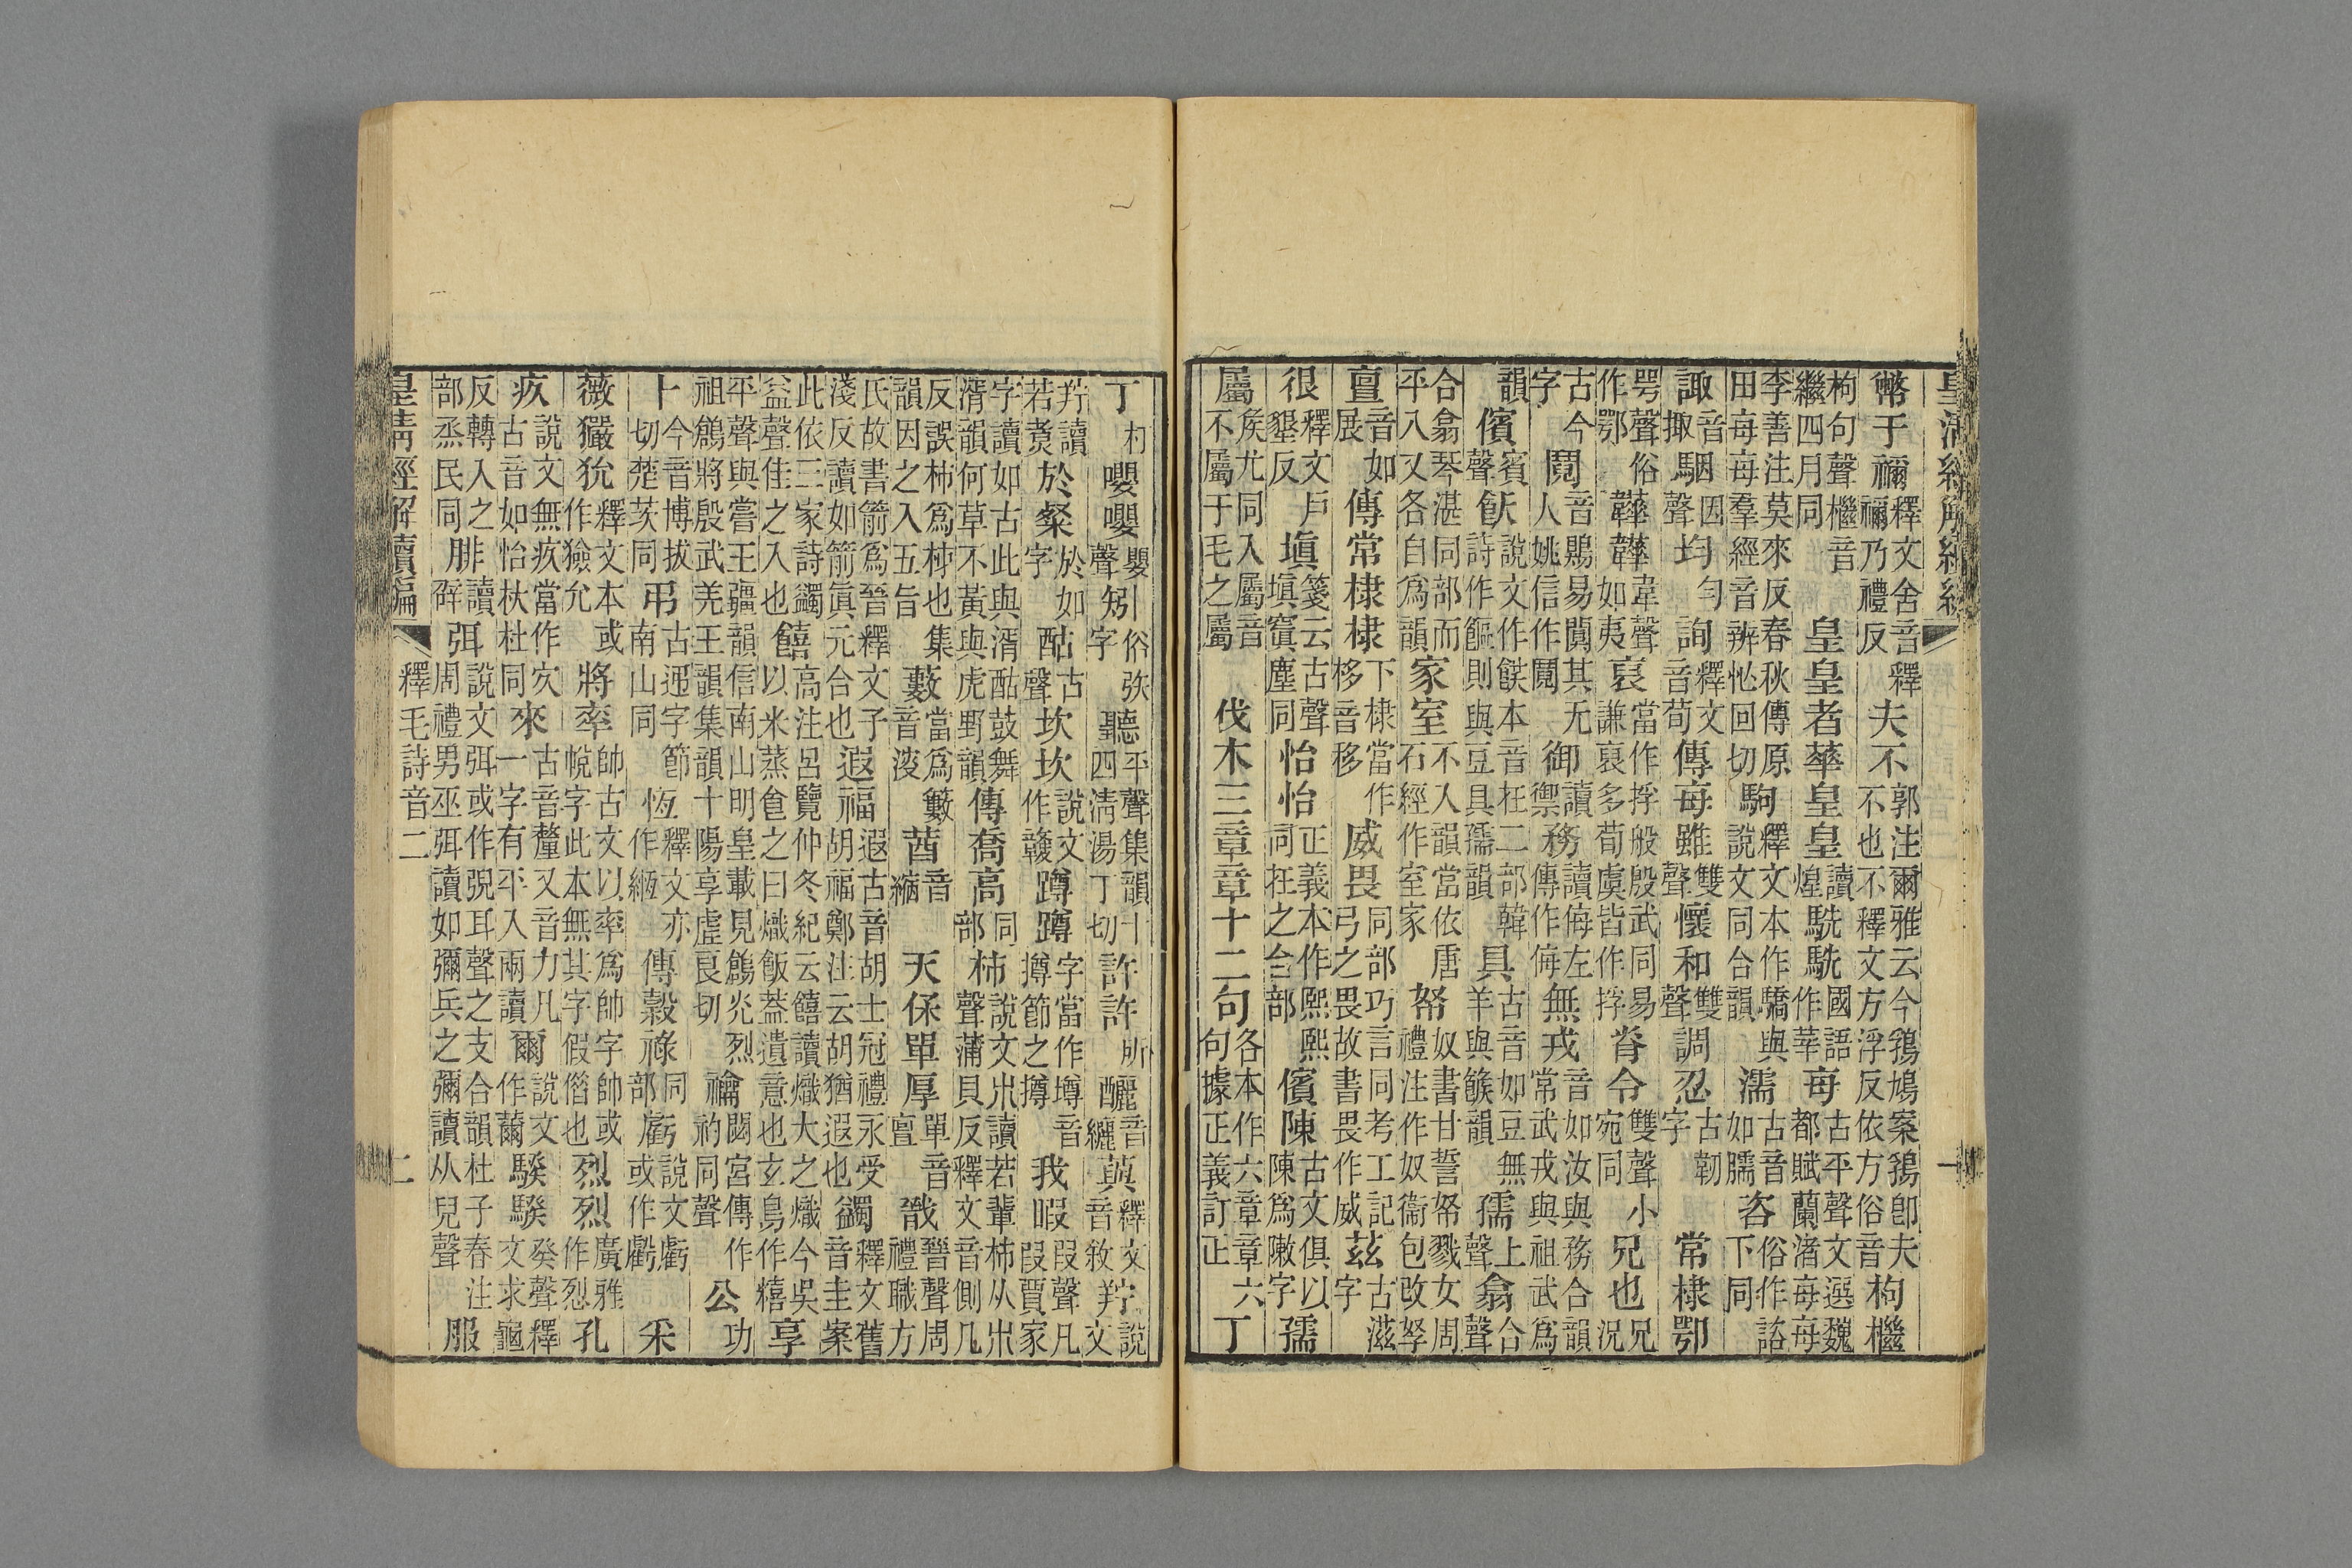 皇清經解續編
幣于禰釋文舍音釋禰乃禮反夫不郭注爾雅云今鵓鳩案鵓卽夫不也不釋文方浮反依方俗音枸檵
枸句聲檵音繼四月同皇皇者華皇皇讀煌駪駪國語作莘每古平聲文選魏都賦蘭渚每每
李善注莫來反春秋傳原田每每羣經音辨怭回切駒釋文本作驕與說文同合韻濡古音如臑咨俗作諮下同
諏音掫駰因聲均勻詢釋文音荀傳每雖雙聲懷和雙聲調忍古韌字常棣鄂
咢聲俗作鄂韡韡韋聲如夷裒當作捊般殷武同易謙裒多荀虞皆作捊脊令雙聲小宛同兄也兄況
古今字鬩音鶪易闃其无人姚信作鬩御讀禦務讀侮左傳作侮無戎音如汝與務合韻常武戎與祖武爲
韻儐賓聲飫說文作䬧本音在二部韓詩作饇則與豆具孺韻具古音如豆無羊與餱韻孺上聲翕合聲
合翕琴湛同部而平入又各自爲韻家室不入韻當依唐石經作室家帑奴書甘誓帑戮女周禮注作奴衞包改孥
亶音如展傳常棣棣下棣當作栘音移威畏同部巧言同考工記弓之畏故書畏作威茲古滋字
很釋文戸墾反塡箋云古聲塡寘塵同怡怡正義本作熙熙同在之咍部儐陳古文俱以陳爲敶字孺
屬矦尤同入屬音不屬于毛之屬伐木三章章十二句各本作六章章六句據正義訂正丁
丁村嚶嚶嬰聲矧俗弥字聽平聲集韻十四淸湯丁切許許所釃音纚藇釋文音敘羜說文
羜讀若煑於粲於如字酤古聲坎坎說文作竷蹲蹲字當作墫音撙節之撙我暇叚聲凡叚賈家
字讀如古此與湑酤鼓舞湑韻何草不黃與虎野韻傳喬高同部杮說文朩讀若輩杮从朩聲蒲貝反釋文音側几
反誤柿爲杮也集韻因之入五旨藪當爲籔音溲莤音縮天保單厚單音亶戩晉聲周禮職方
氏故書箭爲晉釋文子淺反讀如箭眞元合也遐福遐古音胡士冠禮永受胡福鄭注云胡猶遐也蠲釋文舊音圭案
此依三家詩蠲益聲佳之入也饎高注呂覽仲冬紀云饎讀熾大之熾今吳以米蒸之曰熾飯葢遺意也玄鳥作糦享
平聲與嘗王疆韻信南山明皇載見鶬烈祖鶬將殷武羌王韻集韻十陽享虛良切禴閟宮傳作礿同聲公功
卜今音博拔切楚茨同弔古字節南山同恆釋文亦作緪傳榖祿同部虧說文虧或作虧采
薇玁狁釋文本或作獫允將率帥古文以率爲帥字帥或帨字此本無其字假借也烈烈廣雅作烮孔
疚說文無疚當作㝌古音如怡杕杜同來古音釐又音力凡一字有平入兩讀爾說文作薾騤騤癸聲釋文求龜
反轉入之部烝民同腓讀辟弭說文弭或作𢐸耳聲之支合韻杜子春注周禮男巫弭讀如彌兵之彌讀从兒聲服
皇淸經解續編 釋毛詩音二 二